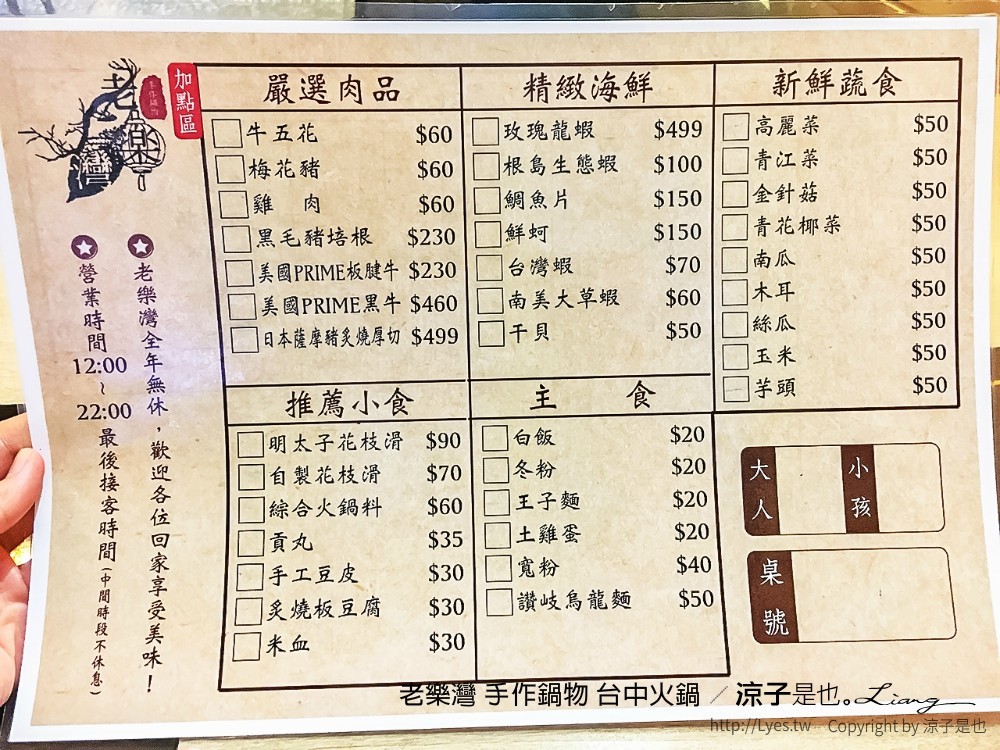 老樂灣
手作鍋物
加點區
老樂灣全年無休，歡迎各位回家享受美味！
營業時間
12:00
~
22:00
最後接客時間(中間時段不休息)
嚴選肉品
牛五花 $60
梅花豬 $60
雞 肉 $60
黑毛豬培根 $230
美國PRIME板腱牛 $230
美國PRIME黑牛 $460
日本薩摩豬炙燒厚切 $499
精緻海鮮
玫瑰龍蝦 $499
根島生態蝦 $100
鯛魚片 $150
鮮蚵 $150
台灣蝦 $70
南美大草蝦 $60
干貝 $50
新鮮蔬食
高麗菜 $50
青江菜 $50
金針菇 $50
青花椰菜 $50
南瓜 $50
木耳 $50
絲瓜 $50
玉米 $50
芋頭 $50
推薦小食
明太子花枝滑 $90
自製花枝滑 $70
綜合火鍋料 $60
貢丸 $35
手工豆皮 $30
炙燒板豆腐 $30
米血 $30
主 食
白飯 $20
冬粉 $20
王子麵 $20
土雞蛋 $20
寬粉 $40
讚岐烏龍麵 $50
大人
小孩
桌號
老樂灣 手作鍋物 台中火鍋 ／ 涼子是也。Liang
http://Lyes.tw Copyright by 涼子是也